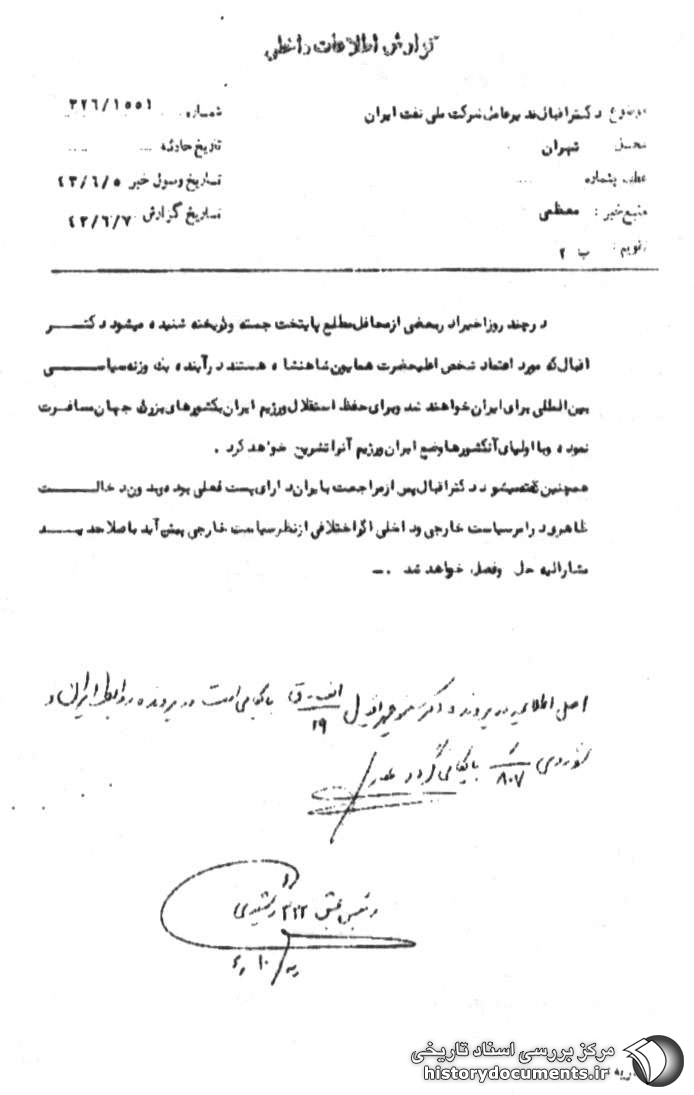 گزارش اطلاعات داخلی
موضوع دکتر اقبال مدیرعامل شرکت ملی نفت ایران
شماره ۳۲۶/۱۵۵۱
محل تهران
تاریخ حادثه
عطف بشماره
تاریخ وصول خبر ۴۳/۶/۵
منبع خبر : معظمی
تاریخ گزارش ۴۳/۶/۷
تقویم : ب ۲
در چند روز اخیر در بعضی از محافل مطلع پایتخت جسته و گریخته شنیده میشود دکتر
اقبال که مورد اعتماد شخص اعلیحضرت همایون شاهنشاه هستند در آینده یک وزنه سیاسی
بین المللی برای ایران خواهند شد و برای حفظ استقلال و رژیم ایران بکشورهای بزرگ جهان مسافرت
نموده و با اولیای آنکشورها وضع ایران و رژیم آنرا تشریح خواهد کرد .
همچنین گفته میشود دکتر اقبال پس از مراجعت بایران دارای پست فعلی بوده و بدون دخالت
ظاهری در امر سیاست خارجی و داخلی اگر اختلافی از نظر سیاست خارجی پیش آید با صلاحدید
مشارالیه حل و فصل خواهد شد .ـ
اصل اطلاعیه در پرونده دکتر منوچهر اقبال ۱۹ بایگانی است در پرونده روابط ایران و
۸۰۷ بایگانی گردد
رئیس بخش ۳۲۲ رشیدی
۱۰ / ۶
مرکز بررسی اسناد تاریخی
historydocuments.ir